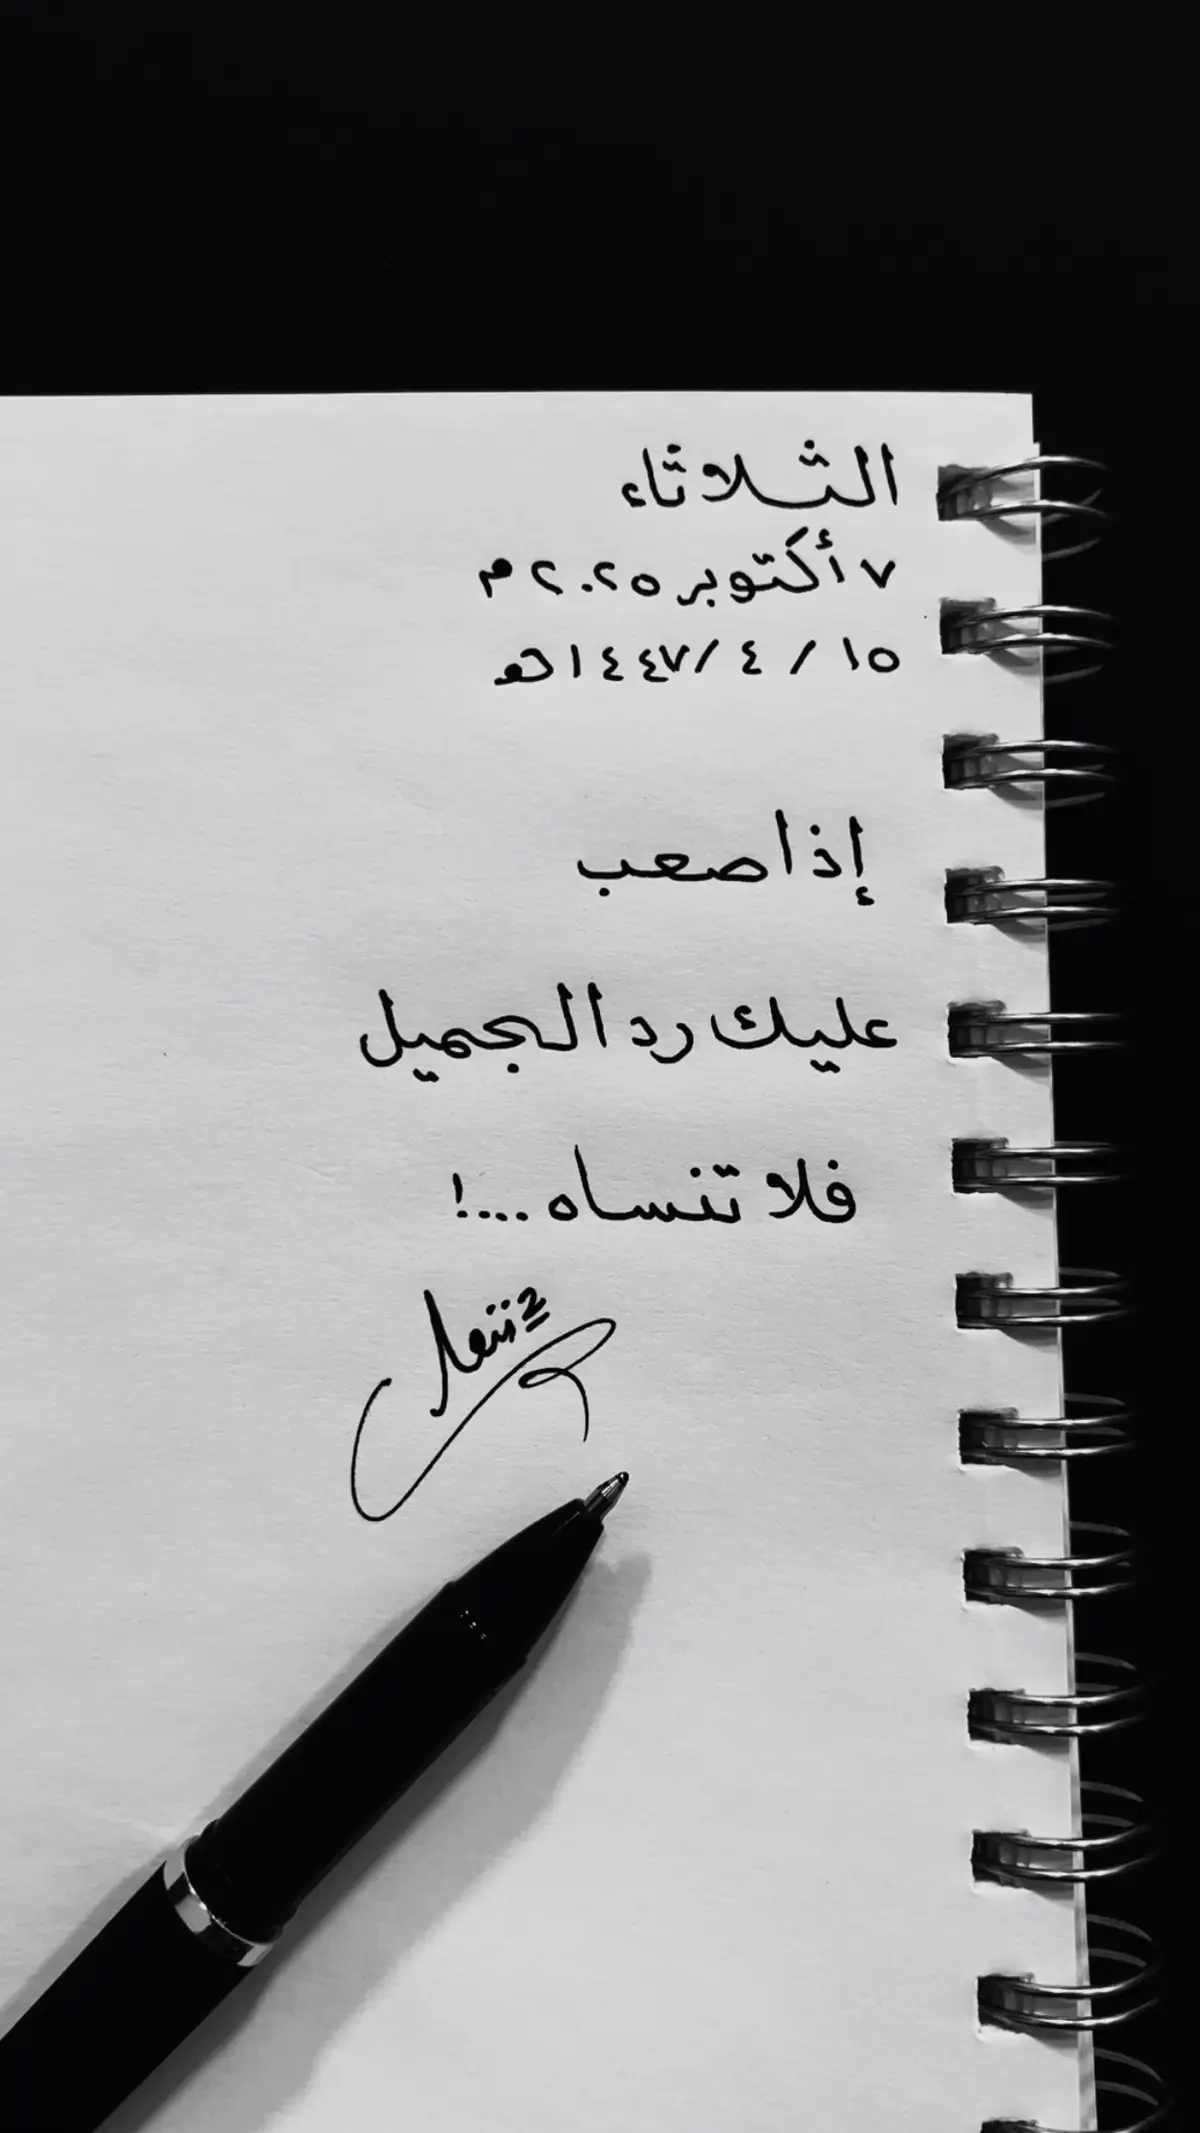 الثلاثاء
٧ أكتوبر ٢٠٢٥ م
١٥ / ٤ / ١٤٤٧هـ
إذا صعب
عليك رد الجميل
فلا تنساه ....!